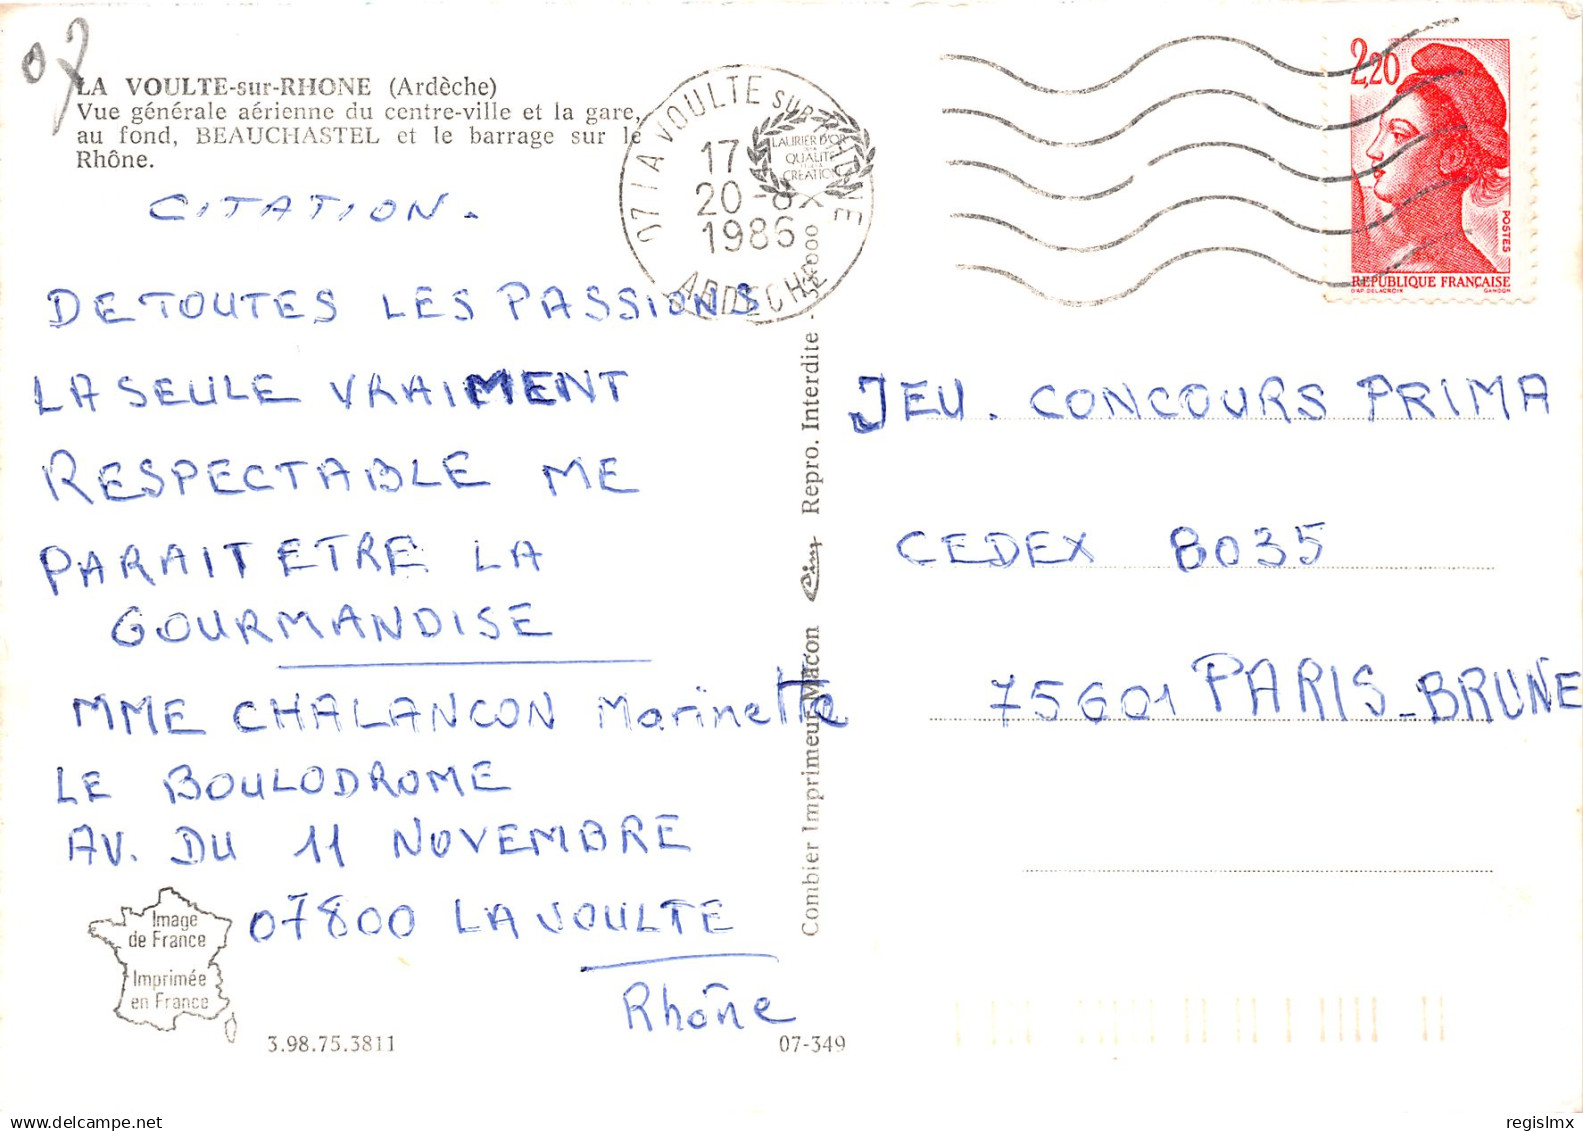 07
LA VOULTE-sur-RHONE (Ardèche)
Vue générale aérienne du centre-ville et la gare,
au fond, BEAUCHASTEL et le barrage sur le
Rhône.
CITATION.
DE TOUTES LES PASSIONS
LA SEULE VRAIMENT
RESPECTABLE ME
PARAIT ETRE LA
GOURMANDISE
MME CHALANCON Marinette
LE BOULODROME
AV. DU 11 NOVEMBRE
07800 LA VOULTE
Rhône
Image
de France
Imprimée
en France
3.98.75.3811
07-349
07 LA VOULTE SUR RHONE
17
20-8
1986
ARDECHE
LAURIER D'OR
QUALITE
CREATION
Combier Imprimeur Mâcon Cim Repro. Interdite
2,20
POSTES
REPUBLIQUE FRANÇAISE
D'AP. DELACROIX GANDON
JEU. CONCOURS PRIMA
CEDEX 8035
75601 PARIS-BRUNE
regislmx